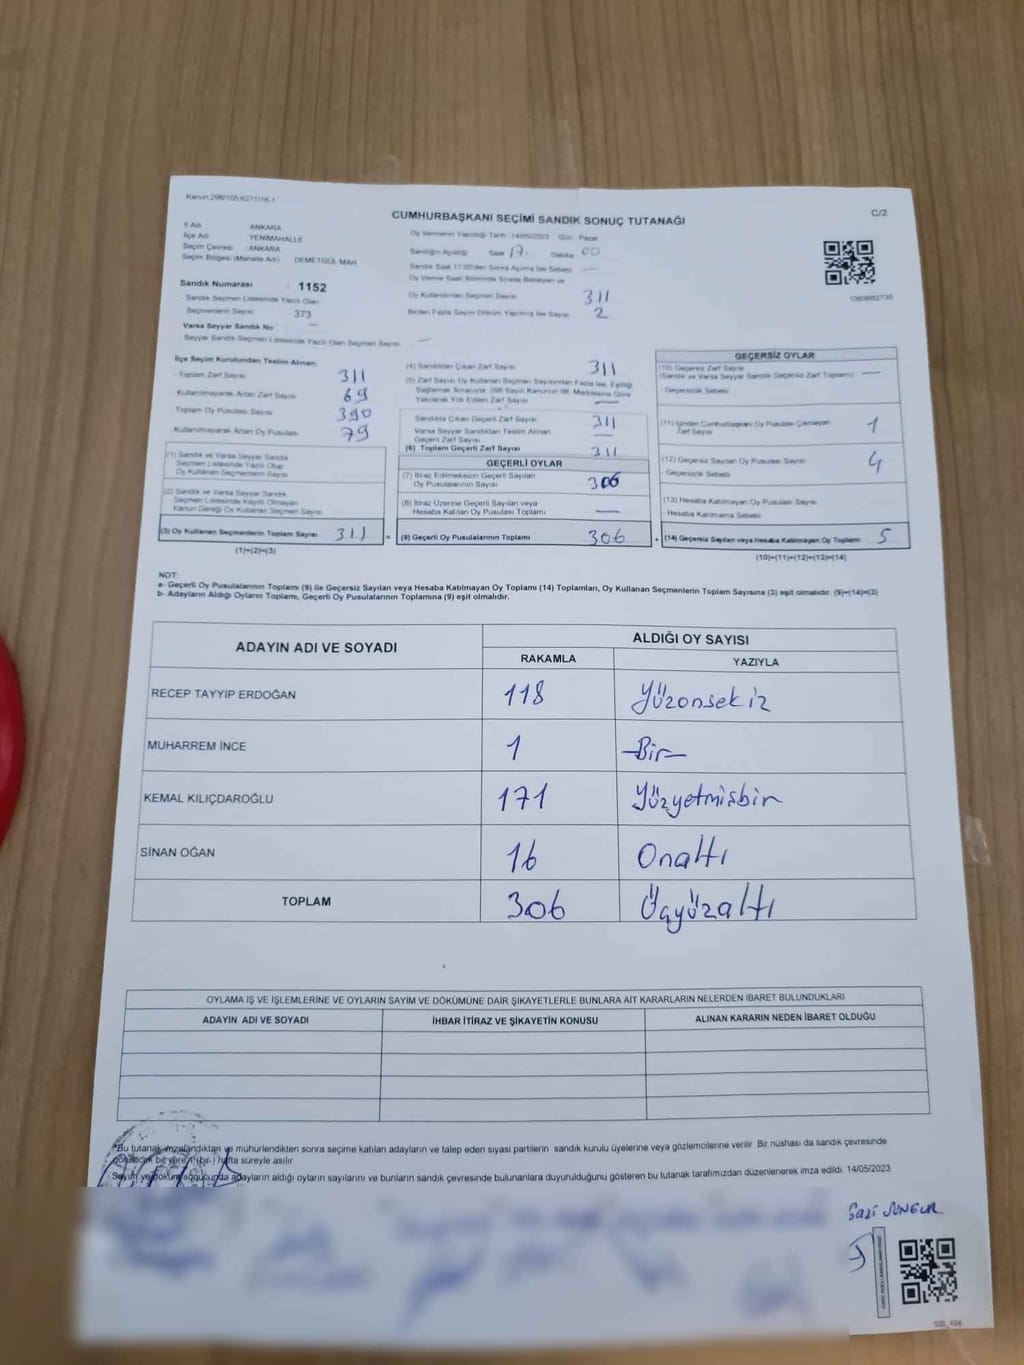 Kanun:298/105.6271/18-1
CUMHURBAŞKANI SEÇİMİ SANDIK SONUÇ TUTANAĞI
C/2
İl Adı ANKARA
İlçe Adı YENİMAHALLE
Seçim Çevresi : ANKARA
Seçim Bölgesi (Mahalle Adı) DEMETGÜL MAH
Sandık Numarası : 1152
Sandık Seçmen Listesinde Yazılı Olan
Seçmenlerin Sayısı 373
Varsa Seyyar Sandık No —
Seyyar Sandık Listesinde Yazılı Olan Seçmen Sayısı —
Oy Vermenin Yapıldığı Tarih 14/05/2023 Gün Pazar
Sandığın Açıldığı Saat 17 Dakika 00
Sandık Saat 17.00'den Sonra Açılmış İse Sebebi —
Oy Verme Saati Bitiminde Sırada Bekleyen ve
Oy Kullandırılan Seçmen Sayısı 311
Birden Fazla Sayım Döküm Yapılmış İse Sayısı 2
1090682735
İlçe Seçim Kurulundan Teslim Alınan:
- Toplam Zarf Sayısı 311
- Kullanılmayarak Artan Zarf Sayısı 69
- Toplam Oy Pusulası Sayısı 390
- Kullanılmayarak Artan Oy Pusulası 79
(1) Sandık ve Varsa Seyyar Sandık
Seçmen Listesinde Yazılı Olup
Oy Kullanan Seçmenlerin Sayısı
(2) Sandık ve Varsa Seyyar Sandık
Seçmen Listesinde Kayıtlı Olmayan
Kanun Gereği Oy Kullanan Seçmen Sayısı
(3) Oy Kullanan Seçmenlerin Toplam Sayısı 311
(1)+(2)=(3)
(4) Sandıktan Çıkan Zarf Sayısı 311
(5) Zarf Sayısı Oy Kullanan Seçmen Sayısından Fazla İse, Eşitliği
Sağlamak Amacıyla, 298 Sayılı Kanunun 98. Maddesine Göre
Yakılarak Yok Edilen Zarf Sayısı —
Sandıkta Çıkan Geçerli Zarf Sayısı 311
Varsa Seyyar Sandıktan Teslim Alınan
Geçerli Zarf Sayısı —
(6) Toplam Geçerli Zarf Sayısı 311
GEÇERLİ OYLAR
(7) İtiraz Edilmeksizin Geçerli Sayılan
Oy Pusulalarının Sayısı 306
(8) İtiraz Üzerine Geçerli Sayılan veya
Hesaba Katılan Oy Pusulası Toplamı —
= (9) Geçerli Oy Pusulalarının Toplamı 306
GEÇERSİZ OYLAR
(10) Geçersiz Zarf Sayısı
(Sandık ve Varsa Seyyar Sandık Geçersiz Zarf Toplamı) —
Geçersizlik Sebebi
(11) İçinden Cumhurbaşkanı Oy Pusulası Çıkmayan
Zarf Sayısı 1
(12) Geçersiz Sayılan Oy Pusulası Sayısı 4
Geçersizlik Sebebi
(13) Hesaba Katılmayan Oy Pusulası Sayısı
Hesaba Katılmama Sebebi
+ (14) Geçersiz Sayılan veya Hesaba Katılmayan Oy Toplamı 5
(10)+(11)+(12)+(13)=(14)
NOT:
a- Geçerli Oy Pusulalarının Toplamı (9) ile Geçersiz Sayılan veya Hesaba Katılmayan Oy Toplamı (14) Toplamları, Oy Kullanan Seçmenlerin Toplam Sayısına (3) eşit olmalıdır. (9)+(14)=(3)
b- Adayların Aldığı Oyların Toplamı, Geçerli Oy Pusulalarının Toplamına (9) eşit olmalıdır.
ADAYIN ADI VE SOYADI
ALDIĞI OY SAYISI
RAKAMLA YAZIYLA
RECEP TAYYİP ERDOĞAN 118 Yüzonsekiz
MUHARREM İNCE 1 —Bir—
KEMAL KILIÇDAROĞLU 171 Yüzyetmişbir
SİNAN OĞAN 16 Onaltı
TOPLAM 306 Üçyüzaltı
OYLAMA İŞ VE İŞLEMLERİNE VE OYLARIN SAYIM VE DÖKÜMÜNE DAİR ŞİKAYETLERLE BUNLARA AİT KARARLARIN NELERDEN İBARET BULUNDUKLARI
ADAYIN ADI VE SOYADI İHBAR İTİRAZ VE ŞİKAYETİN KONUSU ALINAN KARARIN NEDEN İBARET OLDUĞU
*Bu tutanak imzalandıktan ve mühürlendikten sonra seçime katılan adayların ve talep eden siyasi partilerin sandık kurulu üyelerine veya gözlemcilerine verilir. Bir nüshası da sandık çevresinde
görülecek bir yere 1 (bir-) hafta süreyle asılır
Sayım ve döküm sonucunda adayların aldığı oyların sayılarını ve bunların sandık çevresinde bulunanlara duyurulduğunu gösteren bu tutanak tarafımızdan düzenlenerek imza edildi. 14/05/2023
Gazi SUNGUR